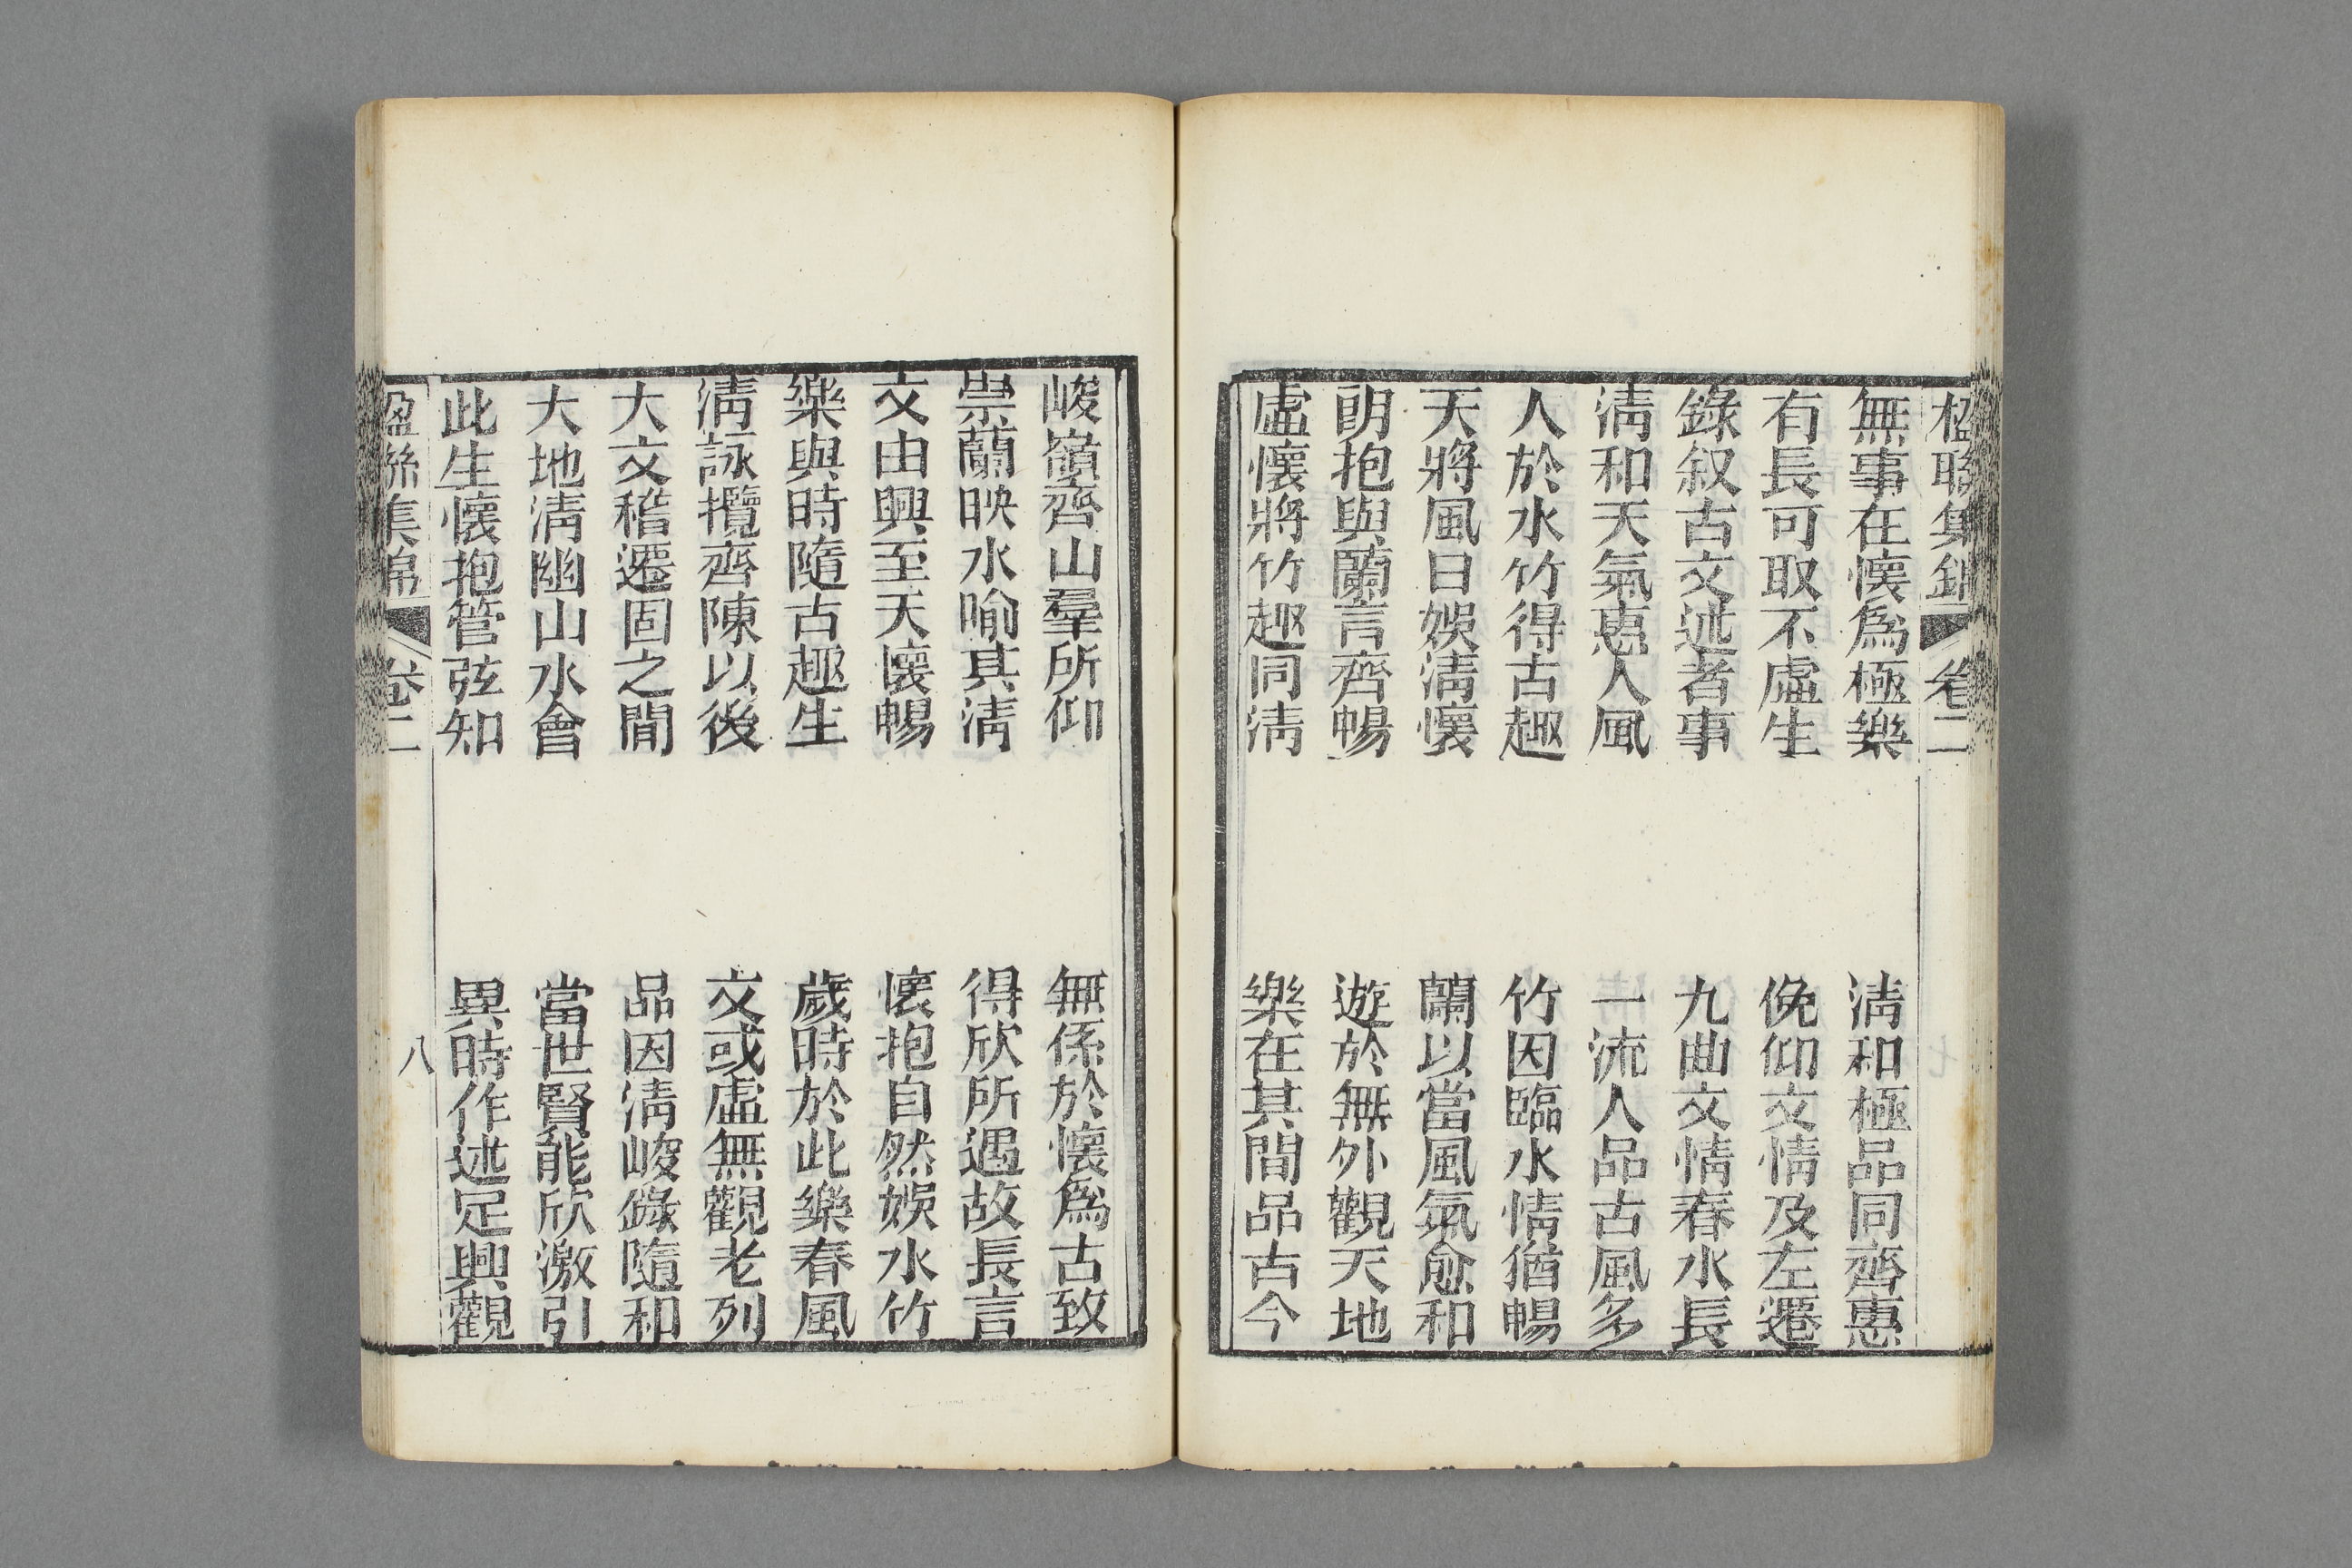 楹聯集錦 卷二
無事在懷爲極樂
清和極品同齊惠
有長可取不虛生
俛仰文情及左遷
錄叙古文述者事
九曲文情春水長
清和天氣惠人風
一流人品古風多
人於水竹得古趣
竹因臨水情猶暢
天將風日娛清懷
蘭以當風氣愈和
朗抱與蘭言齊暢
遊於無外觀天地
虛懷將竹趣同清
樂在其間品古今
峻嶺齊山羣所仰
無係於懷爲古致
崇蘭映水喻其清
得欣所遇故長言
文由興至天懷暢
懷抱自然娛水竹
樂與時隨古趣生
歲時於此樂春風
清詠攬齊陳以後
文或虛無觀老列
大文稽遷固之間
品因清峻錄隨和
大地清幽山水會
當世賢能欣激引
此生懷抱管弦知
異時作述足興觀
楹聯集錦 卷二
八